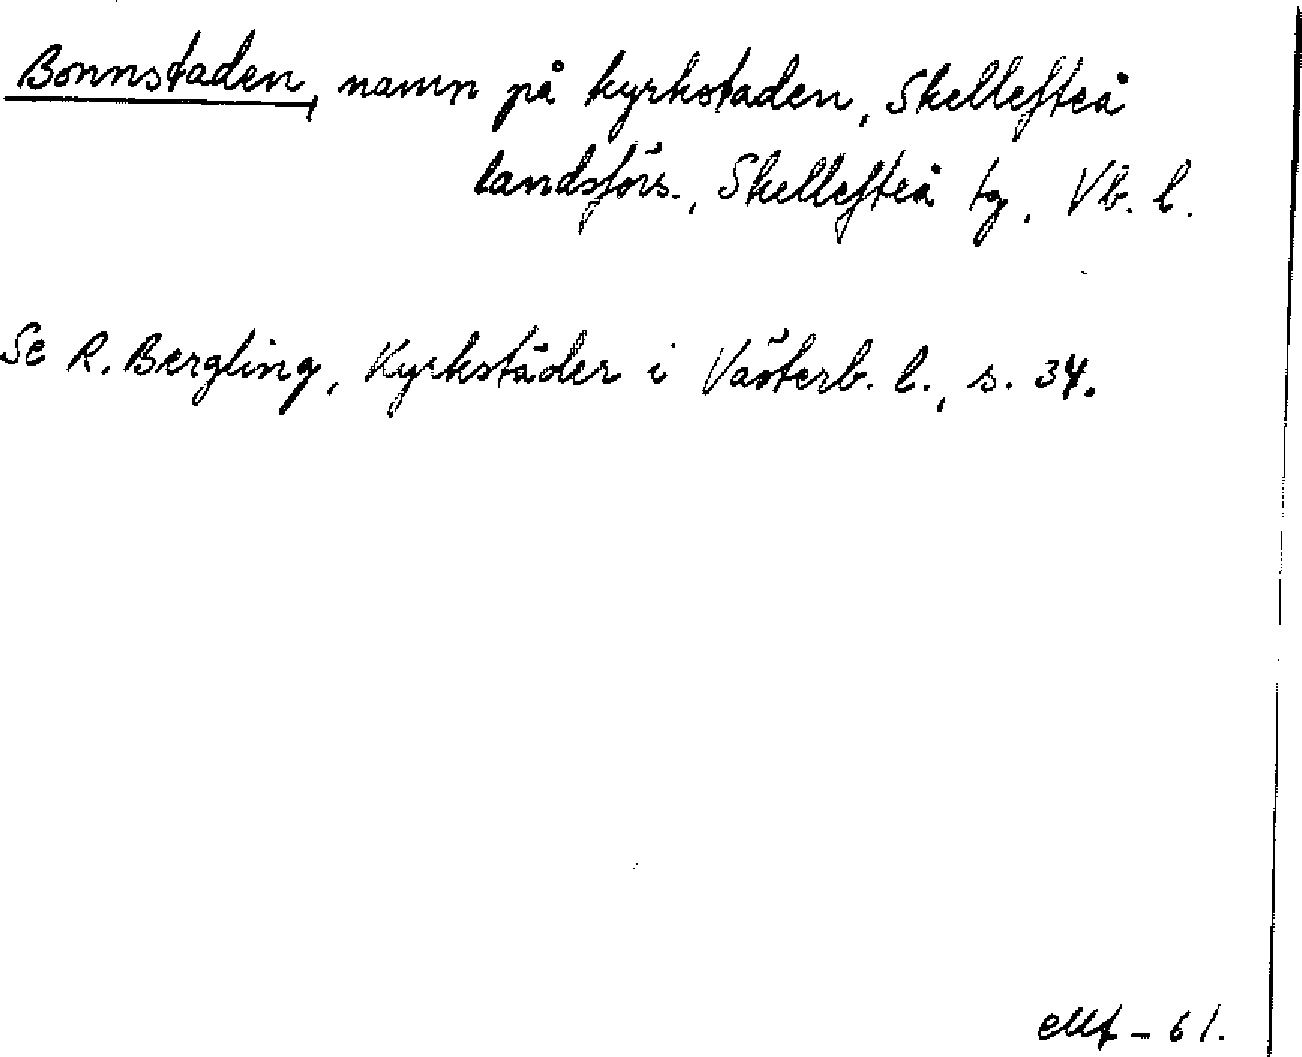 Bonnstaden, namn på kyrkstaden, Skellefteå
landsförs., Skellefteå tg, Vb. l.
Se R. Bergling, Kyrkstäder i Västerb. l., s. 34.
-61.